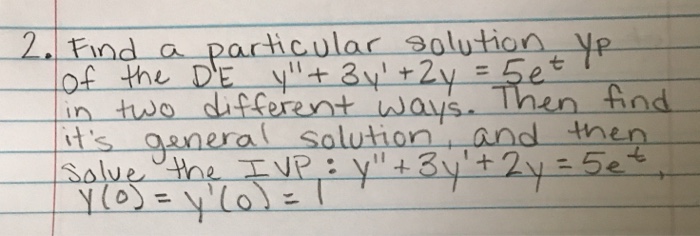 2. Find a particular solution yp
of the DE y'' + 3y' + 2y = 5e^t
in two different ways. Then find
it's general solution, and then
solve the IVP: y'' + 3y' + 2y = 5e^t,
y(0) = y'(0) = 1